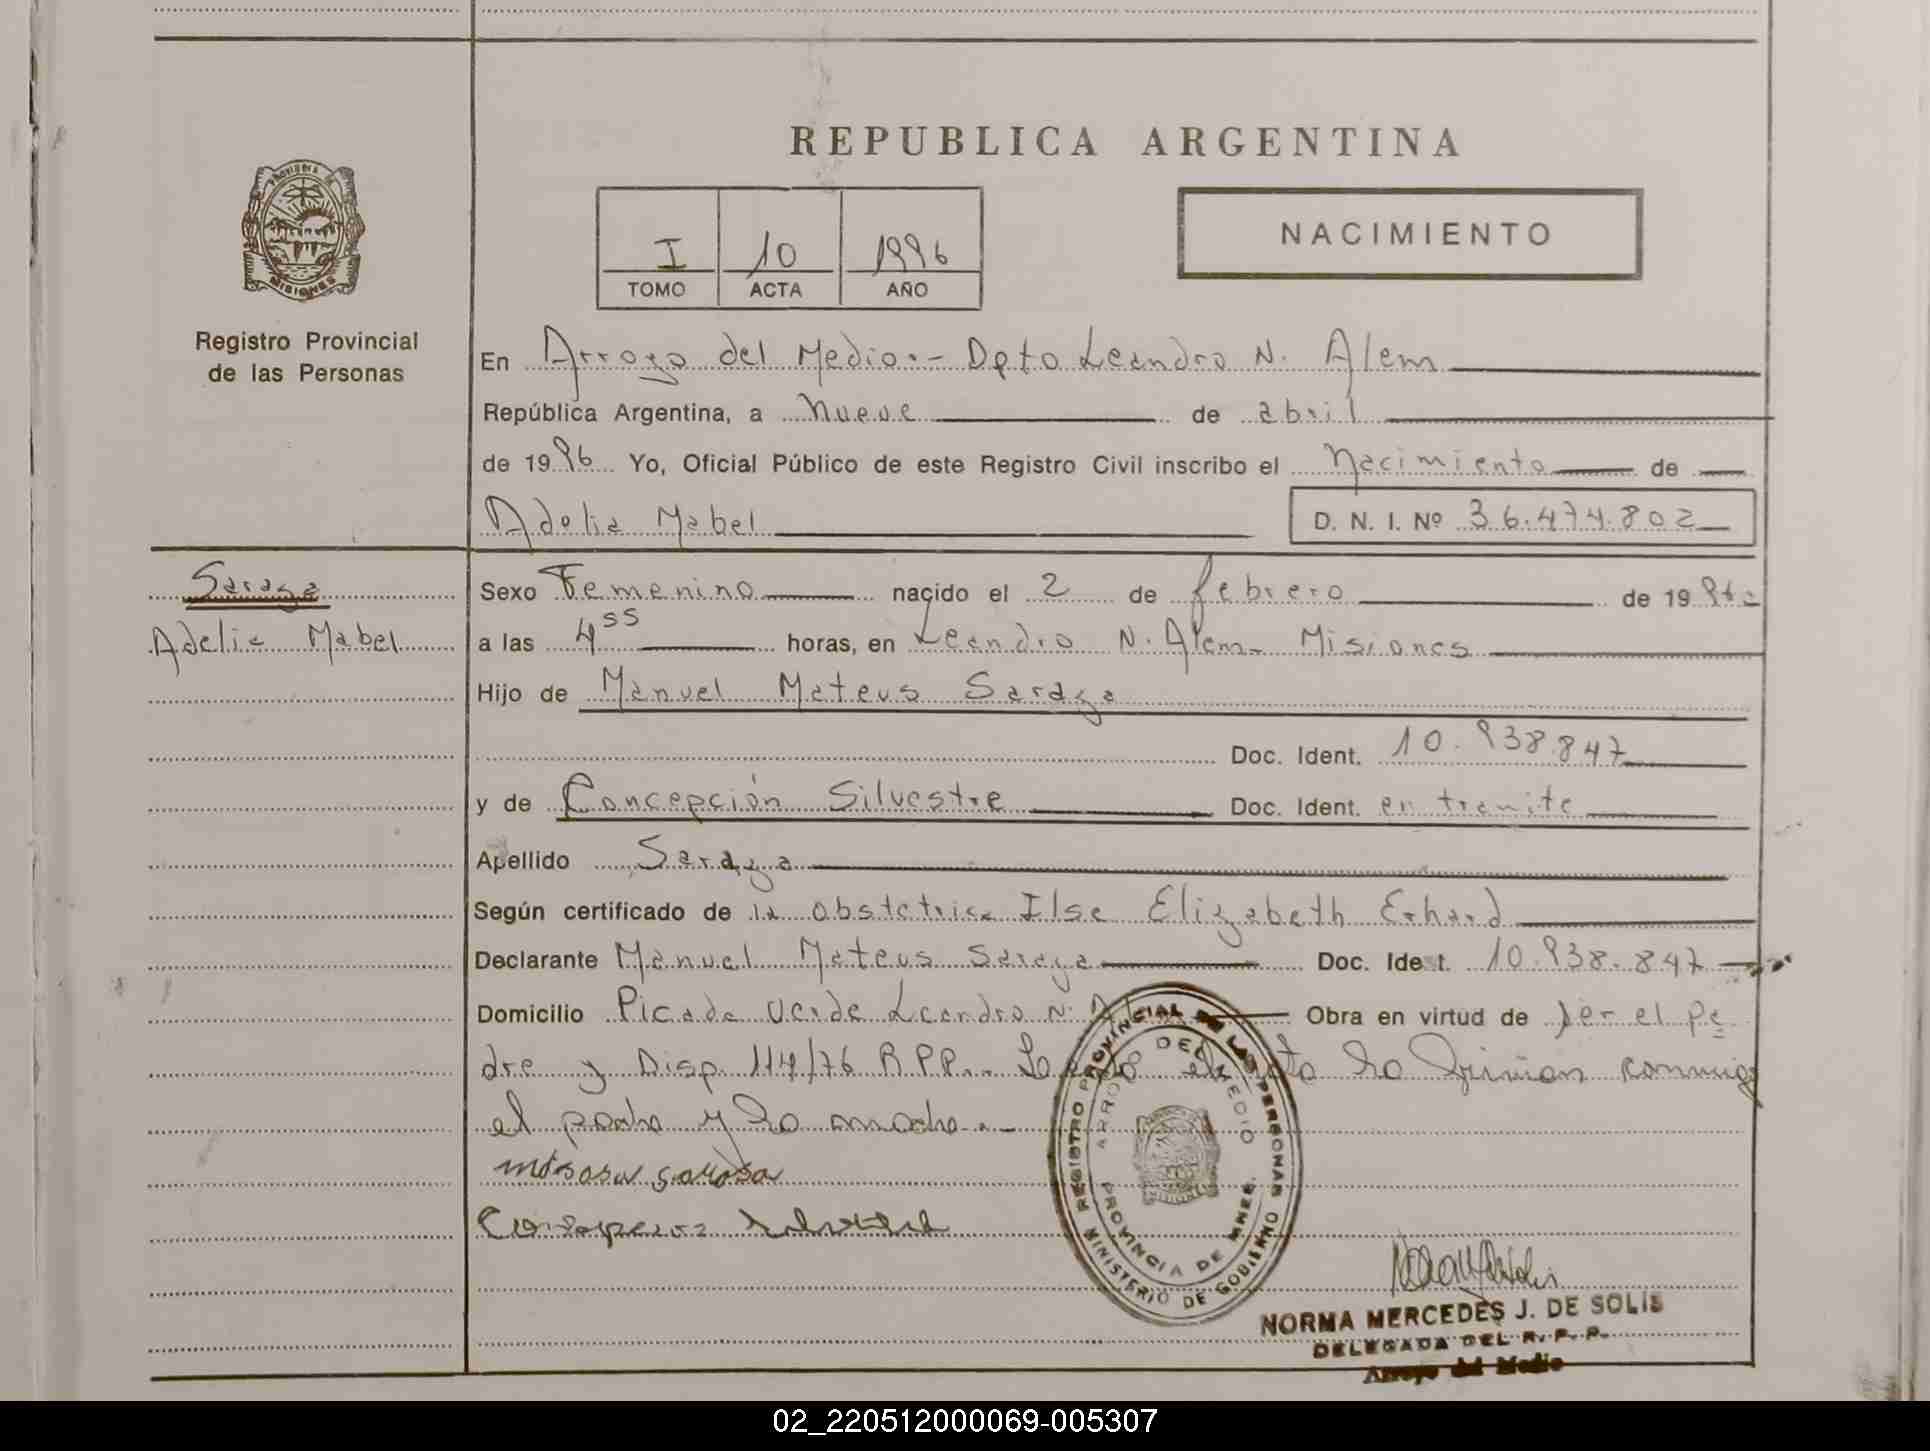 REPUBLICA ARGENTINA
PROVINCIA DE
MISIONES
Registro Provincial
de las Personas
I 10 1996
TOMO ACTA AÑO
NACIMIENTO
En Arroyo del Medio.- Dpto Leandro N. Alem
República Argentina, a nueve de abril
de 1996 Yo, Oficial Público de este Registro Civil inscribo el Nacimiento de
Adelia Mabel
D. N. I. Nº 36.474.802
Saraza
Adelia Mabel
Sexo Femenino nacido el 2 de febrero de 19
a las 4 55 horas, en Leandro N. Alem - Misiones
Hijo de Manuel Mateus Saraza
Doc. Ident. 10.938.847
y de Concepción Silvestre Doc. Ident. en tramite
Apellido Saraza
Según certificado de la obstetrica Ilse Elizabeth Erhard
Declarante Manuel Mateus Saraza Doc. Ident. 10.938.847
Domicilio Picada Verde Leandro N. Obra en virtud de ser el pa
dre y Disp. 114/76 R.P.P.. acta la firman conmigo
el padre y la madre.-
REGISTRO PROVINCIAL DE LAS PERSONAS
MINISTERIO DE GOBIERNO
ARROYO DEL MEDIO
PROVINCIA DE MNES.
NORMA MERCEDES J. DE SOLIS
DELEGADA DEL R. P. P.
Arroyo del Medio
02_220512000069-005307